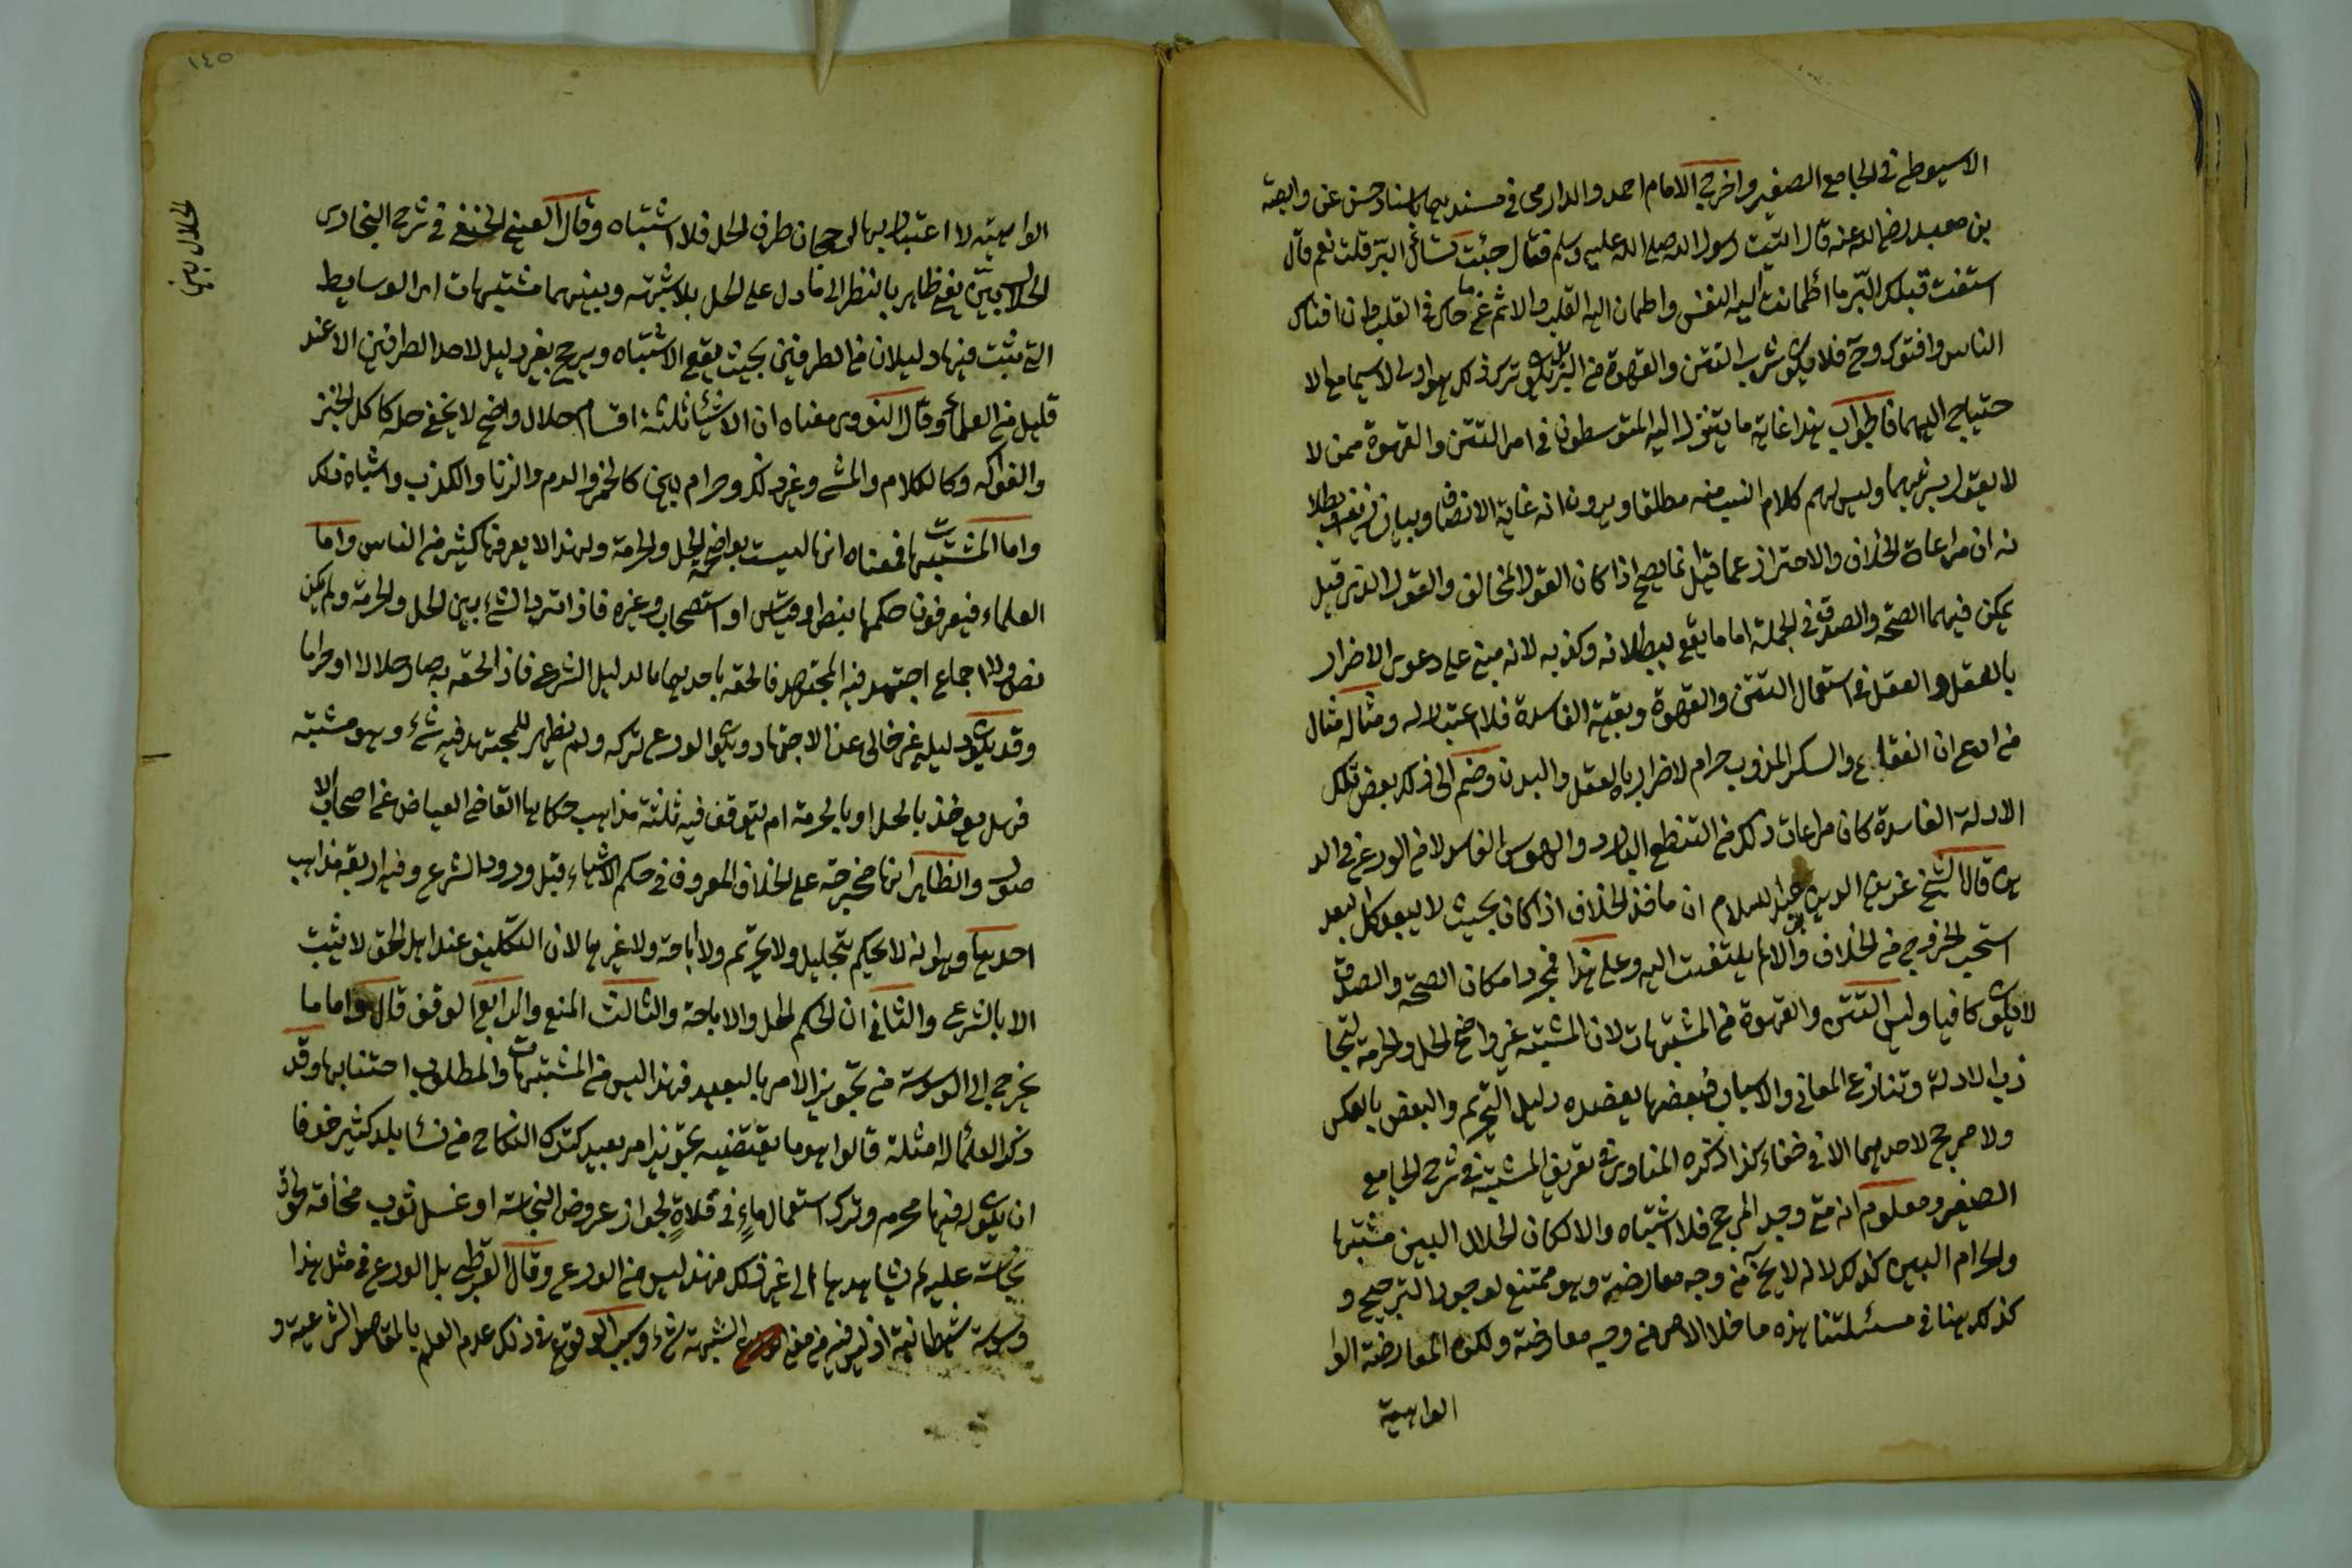 الاسيوطي في الجامع الصغير واخرج الامام احمد والدارمي في مسنديهما باسناد حسن عن وابصة
بن معبد رضي الله عنه قال اتيت رسول الله صلى الله عليه وسلم فقال جئت تسأل عن البر قلت نعم قال
استفت قلبك البر ما اطمانت اليه النفس واطمان اليه القلب والاثم ما حاك في القلب وان افتاك
الناس وافتوك وح فلا يكون شرب التتن والقهوة من البر بل يكون ترك ذلك هو اولى لا سيما مع الا
حتياج اليهما فالجواب هذا غاية ما يتنزل اليه المتوسطون في امر التتن والقهوة ممن لا
لا يقول بحرمتهما وليس لهم كلام النسب منه مطلقا ويرون انه غاية الانصاف وبيان بطلا
نه ان مراعاة الخلاف والاحتراز عما قيل انما يصح اذا كان القول المخالف والقول الذي قيل
يمكن فيهما الصحة والصدق في الجملة اما ما يقع ببطلانه وكذبه لانه مبني على دعوى الاضرار
بالعقل والعقل في استعمال التتن والقهوة وبقية الفاسدة فلا اعتبار له ومثاله مثال
من ادعى ان الفقاع والسكر المذوب حرام لاضراره بالعقل والبدن وضم الى ذلك بعض تلك
الادلة الفاسدة كان مراعات ذلك من التنطع البارد والهوس الفاسد لا من الورع في الد
ين قال الشيخ عز الدين بن عبد السلام ان مأخذ الخلاف اذا كان بحيث لا يبعد كل البعد
استحب الخروج من الخلاف والا لم يلتفت اليه وعلى هذا فمجرد امكان الصحة والصدق
لا يكون كافيا وليس التتن والقهوة من المشتبهات لان المشتبه غير واضح الحل والحرمة لتجا
ذب الادلة وتنازع المعاني والاسباب فبعضها يعضده دليل التحريم والبعض بالعكس
ولا مرجح لاحدهما الا في خفاء كذا ذكره المناوي في تعريف المشتبه في شرح الجامع
الصغير ومعلوم انه متى وجد المرجح فلا اشتباه والا لكان الحلال البين مشتبها
والحرام البين كذلك لانه لا يخلو من وجه معارضة وهو ممتنع لوجود الترجيح و
كذلك هنا في مسئلتنا هذه ما خلا الامر من وجه معارضة ولكن المعارضة الوا
الواهية
١٤٥
الحلال بين
الواهية لا اعتبار بها لرجحان طرف الحل فلا اشتباه وقال العيني الحنفي في شرح البخاري
الحلال بين يعني ظاهر بالنظر الى ما دل على الحل بلا شبهة وبينهما مشتبهات اى الوسايط
التي تثبت فيها دليلان من الطرفين بحيث يقع الاشتباه ويرجح بغير دليل لاحد الطرفين الا عند
قليل من العلماء وقال النووى معناه ان الاشياء ثلثة اقسام حلال واضح لا يخفى حله كاكل الخبز
والفواكه وكالكلام والمشي وغير ذلك وحرام بين كالخمر والدم والزنا والكذب واشباه ذلك
واما المشتبهات فمعناه انها ليست بواضحة الحل والحرمة ولهذا لا يعرفها كثير من الناس واما
العلماء فيعرفون حكمها بنص او قياس او استصحاب وغيره فاذا تردد الشيء بين الحل والحرمة ولم يكن
نص ولا اجماع اجتهد فيه المجتهد فالحقه باحدهما بالدليل الشرعي فاذا الحقه به صار حلالا او حراما
وقد يكون دليله غير خالي عن الاجتهاد ويكون الورع تركه ولم يظهر للمجتهد فيه شيء وهو مشتبه
فهل يؤخذ بالحل او بالحرمة ام يتوقف فيه ثلثة مذاهب حكاها القاضي العياض عن اصحاب الا
صول والظاهر انها مخرجة على الخلاف المعروف في حكم الاشياء قبل ورود الشرع وفيه اربعة مذاهب
احدها وهو انه لا يحكم بتحليل ولا تحريم ولا اباحة ولا غيرها لان التكليف عند اهل الحق لا يثبت
الا بالشرع والثاني ان الحكم الحل والاباحة والثالث المنع والرابع الوقف قال واما ما
يخرج الى الوسوسة من تجويز الامر بالبعيد فهذا ليس من المشتبهات والمطلوب اجتنابها وقد
ذكر العلماء له امثلة قالوا هو ما يقتضيه تجويز امر بعيد كترك النكاح من نساء بلد كثير خوفا
ان يكون له فيها محرم وترك استعمال ماء في فلاة لجواز عروض النجاسة او غسل ثوب مخافة طرق
نجاسة عليه لم يشاهدها الى غير ذلك فهذا ليس من الورع وقال القرطبي بل الورع في مثل هذا
وسوسة شيطانية اذ ليس فيه من معنى الشبهة شيء وسبب الوقوع في ذلك عدم العلم بالمقاصد الشرعية و